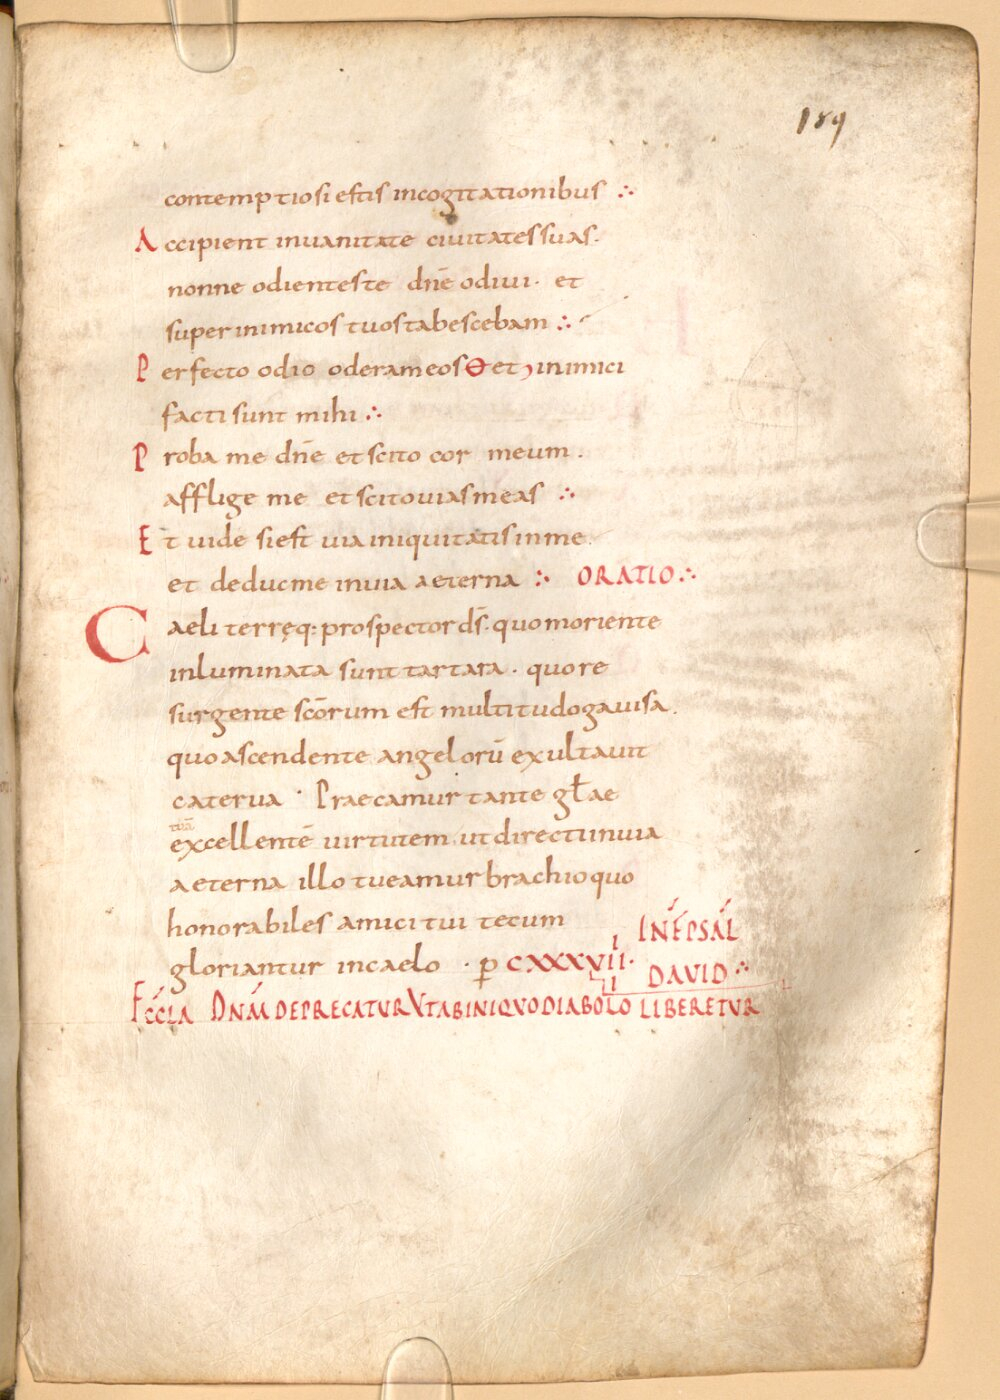 189
contemptiosi estis incogitationibus ∴
Accipient inuanitate ciuitates suas.
nonne odienteste dn̄e odiui· et
super inimicos tuos tabescebam ∴
Perfecto odio oderam eos et inimici
facti sunt mihi ∴
Proba me dn̄e et scito cor meum .
afflige me et scito uias meas ∴
Et uide si est uia iniquitatis inme.
et deducme inuia aeterna ∴ ORATIO ∴
Caeli terręq: prospector ds̄. quo moriente
inluminata sunt tartara · quo re
surgente sc̄orum est multitudo gauisa.
quo ascendente angelorū exultauit
caterua · Praecamur tante głae
tuā
excellentē uirtutem ut directi inuia
aeterna illo tueamur brachio quo
honorabiles amici tui tecum IN FĒ PSAL
gloriantur incaelo · p CXXXVIII· DAVID ∴
Ecc̄la Dn̄m DEPRECATUR UT AB INIQUO DIABOLO LIBERETUR